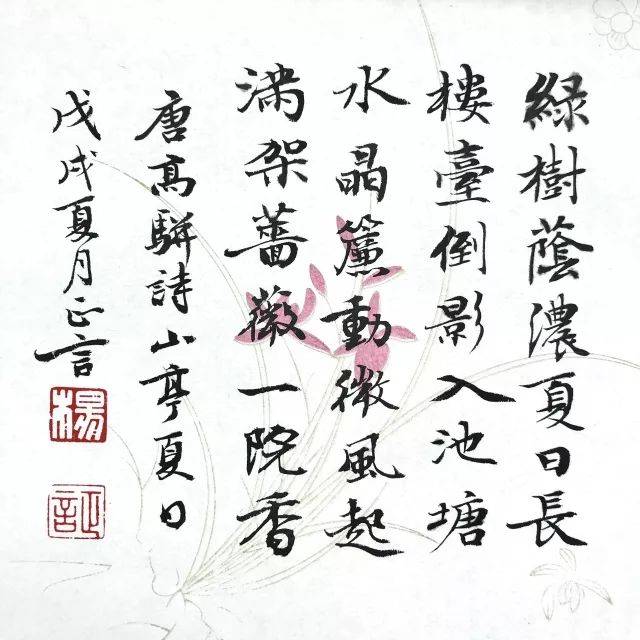 綠樹蔭濃夏日長
樓臺倒影入池塘
水晶簾動微風起
滿架薔薇一院香
唐高駢詩山亭夏日
戊戌夏月正言
楊
正言